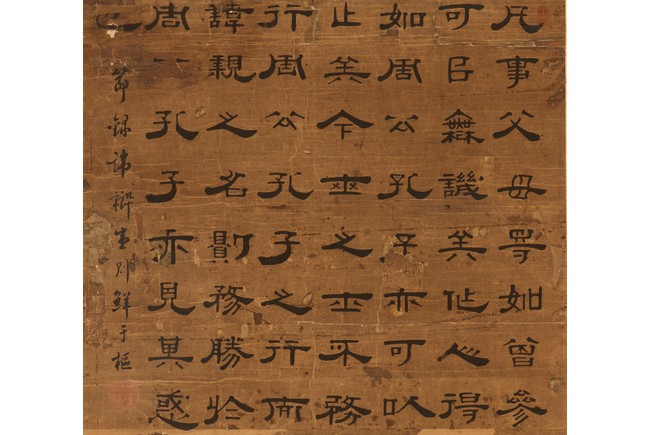 凡事父母㝵如曾參
可㠯無譏矣作人得
如周公孔子亦可以
止矣今世之士不務
行周公孔子之行而
諱親之名則務勝於
周公孔子亦見其惑
也
節錄諱辯鮮于樞